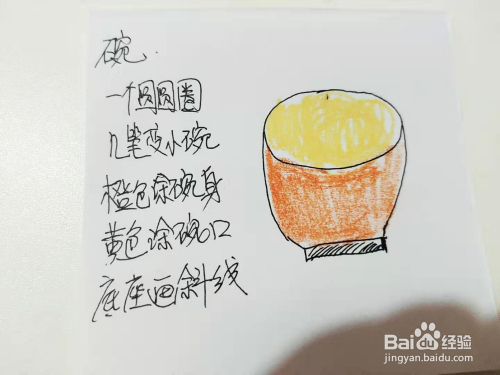 碗.
一个圆圆圈
几笔变小碗
橙色涂碗身
黄色涂碗口
底座画斜线
Baidu 经验
jingyan.baidu.com